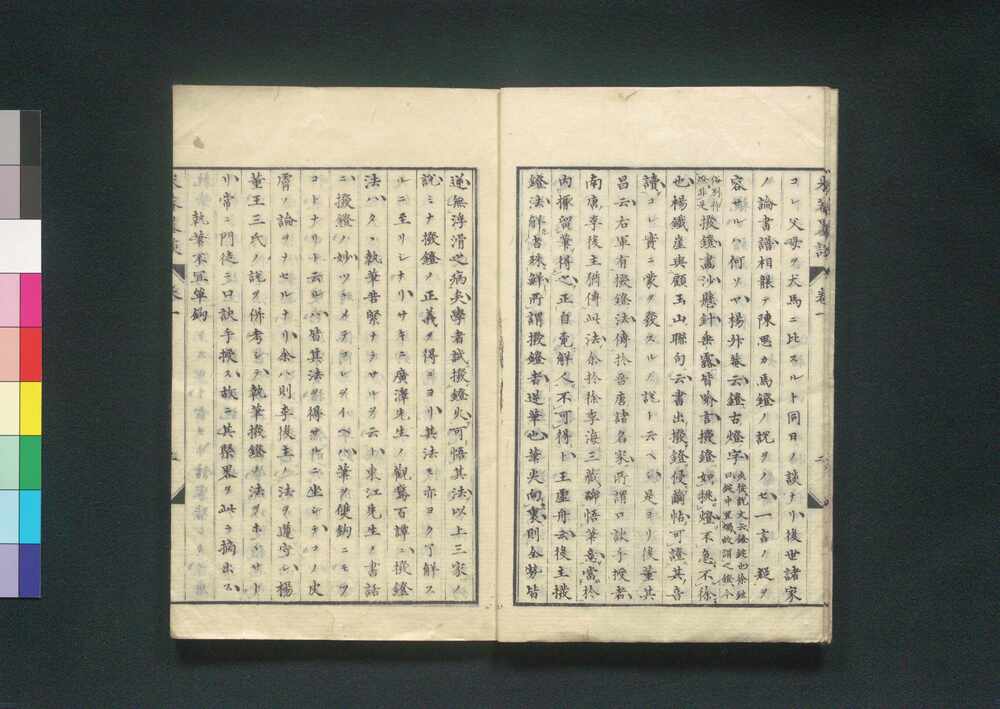 コレ父母ヲ犬馬ニ比スルト同日ノ談ナリ後世諸家
ノ論書譜相襲テ陳思カ馬鐙ノ説ヲノセ一言ノ疑ヲ
容サルハ何ソヤ楊升菴云鐙古燈字
也楊鐵崖與顧玉山聯句云書出撥鐙侵繭帖可證其音
讀コレ實ニ蒙ヲ發スルノ説ト云ヘシ是ヨリ後董其
昌云右軍有撥鐙法傳於晉唐諸名家所謂口訣手授者
南唐李後主猶傳此法余於徐李海三藏碑悟筆意當於
內擫留筆得之正自覺解人不可得ト王虛舟云後主撥
鐙法解者殊鮮所謂撥鐙者逆筆也筆尖向裏則全勢皆
逆無浮滑之病矣學者試撥鐙火可悟其法以上三家ノ
説ミナ撥鐙ノ正義ヲ得ニヨリ其法モ亦ヨク了解ス
ルニ至リシナリサキニ廣澤先生ノ觀鵞百譚ニ撥鐙
法ハタヽ執筆昔緊ナラサルヲ云ト東江先生ノ書話
ニハ撥鐙ノ妙ツメテコレヲイヘハ筆ヲ雙鈎ニモツ
コトナリト云ルハ皆其法ヲ得サルニ坐シテコノ皮
膚ノ論ヲナセルナリ余ハ則李後主ノ法ヲ遵守シ楊
董王三氏ノ説ヲ併考シテ執筆撥鐙ノ法ヲホトサト
リ常ニ門徒ニ口訣手授ス故ニ其槩畧ヲ此ニ摘出ス
執筆不宜單鈎